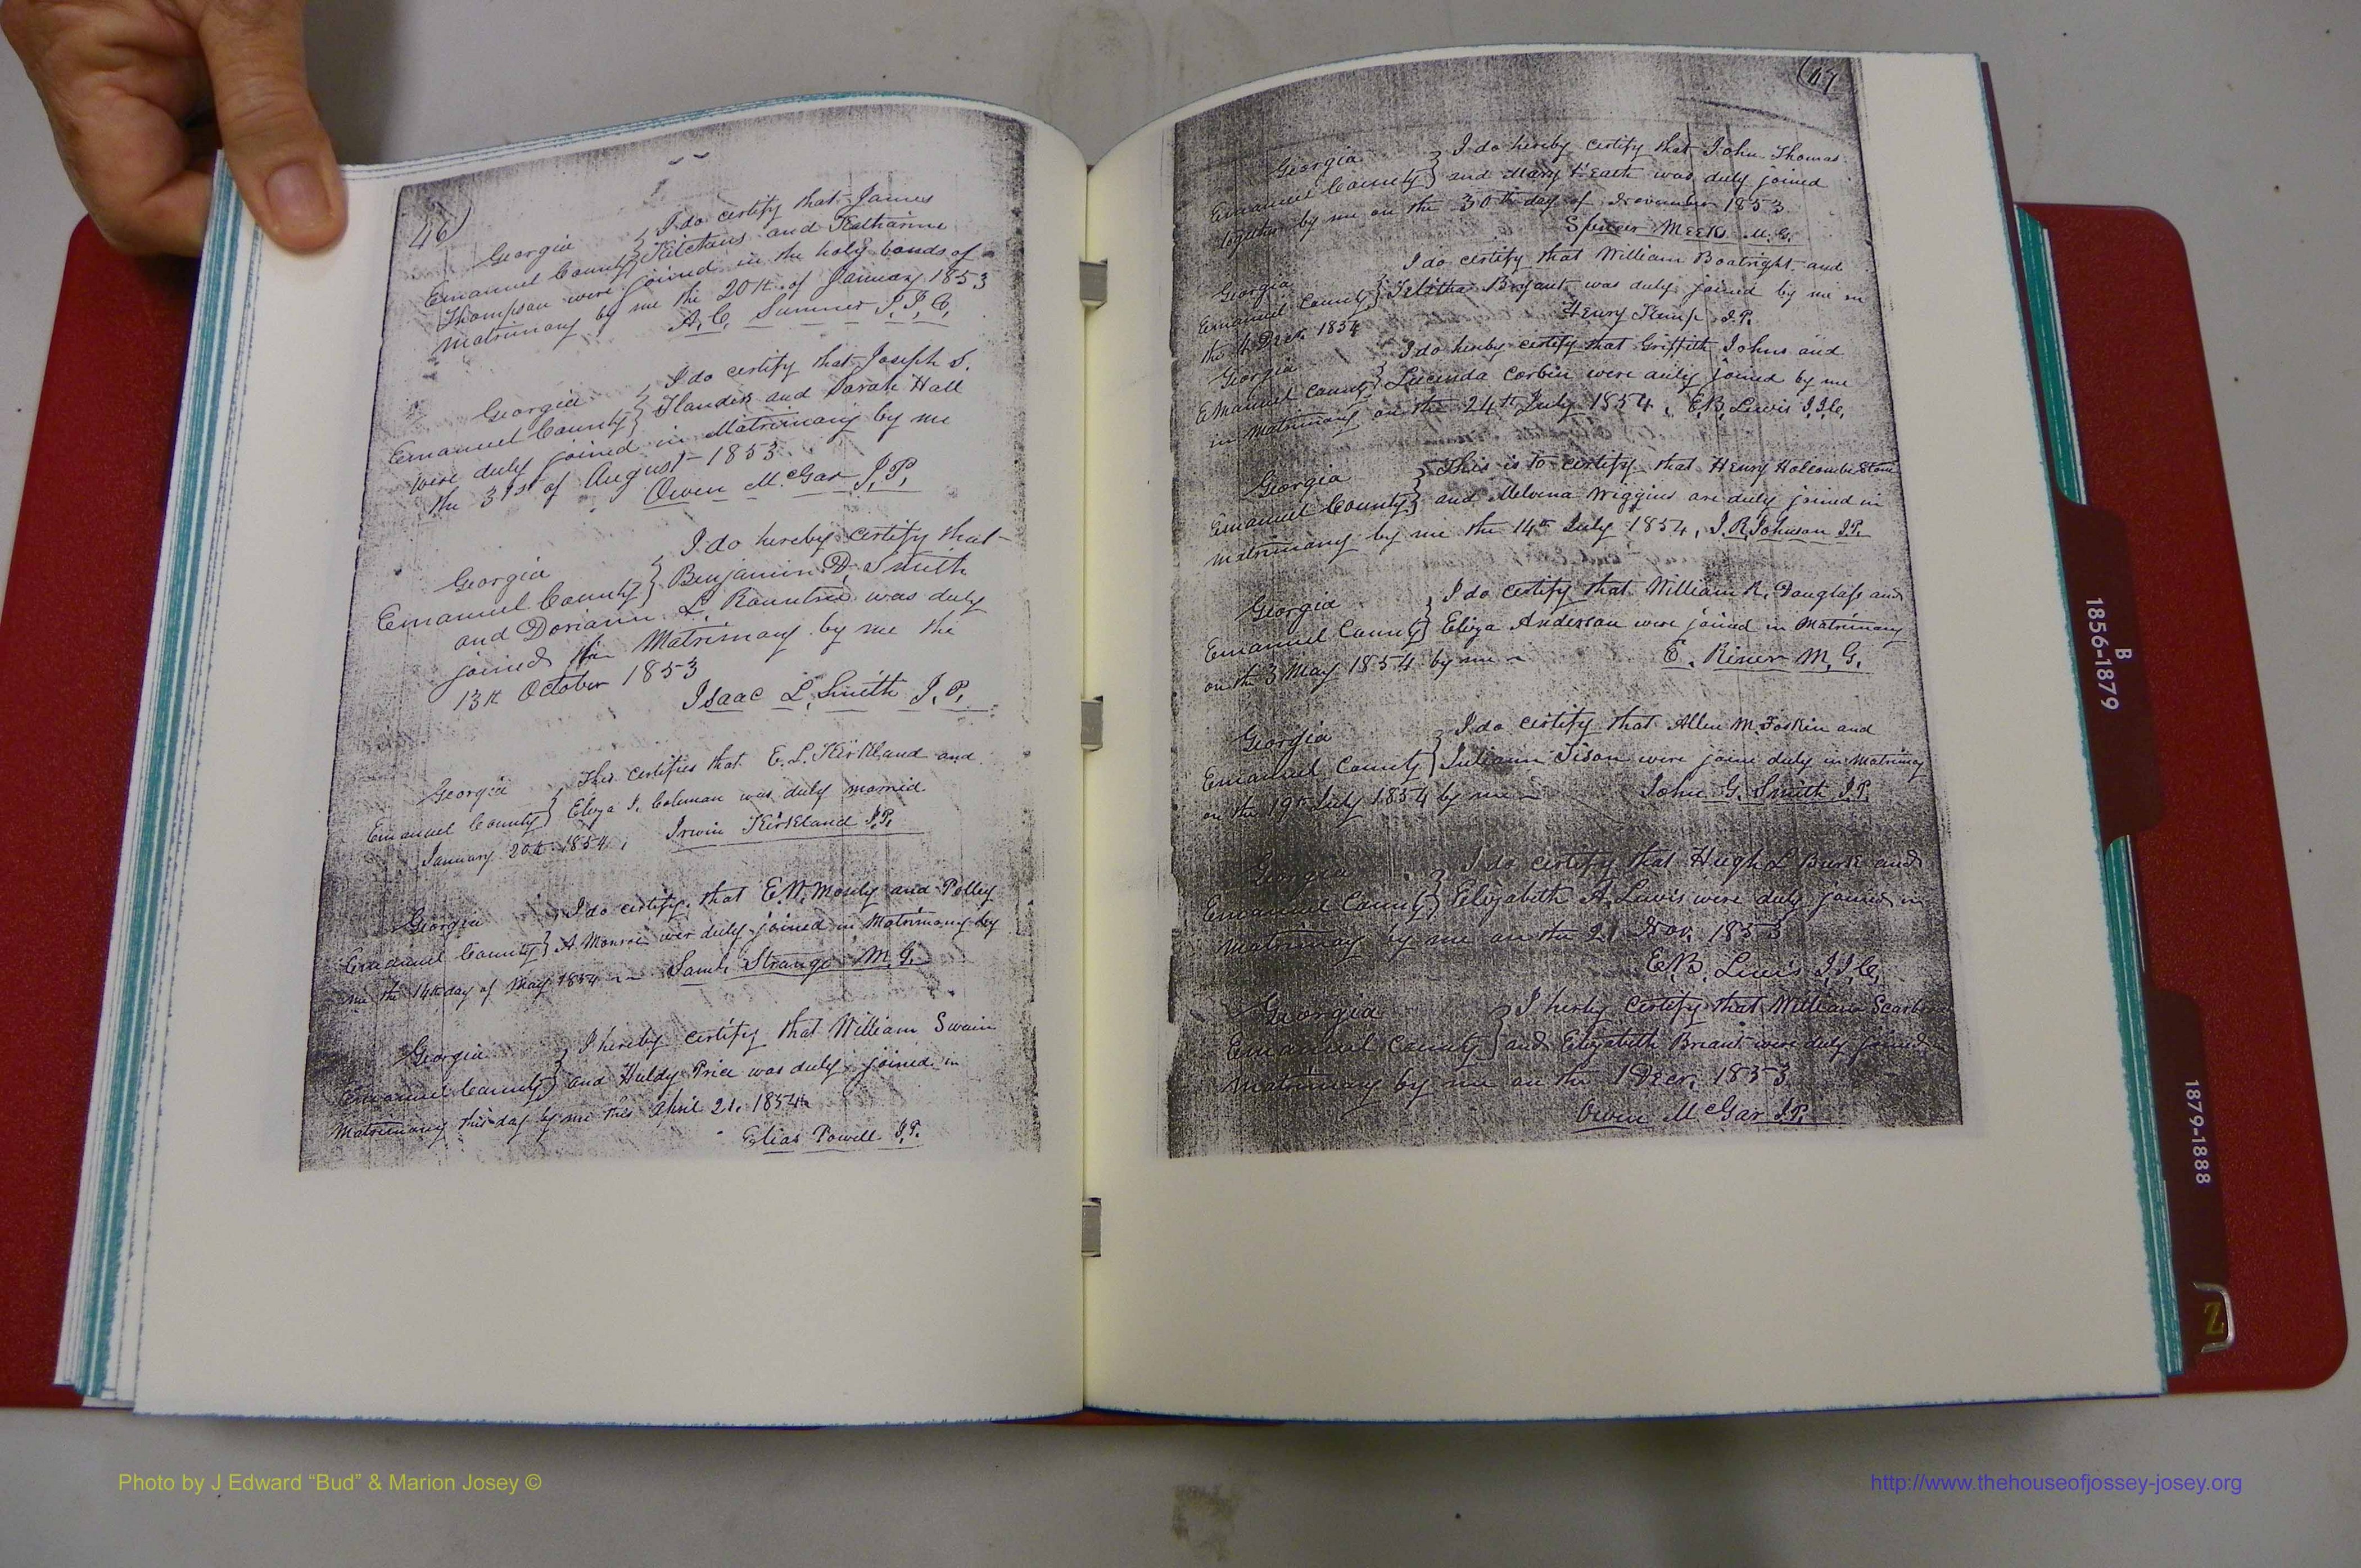 46)
I do certify that James
Georgia } Kitchens and Katharine
Emanuel County
Thompson were joined in the holy bonds of
matrimony by me the 20th of January 1853
A. C. Sumner J. I. C.
I do certify that Joseph S.
Georgia } Flanders and Sarah Hall
Emanuel County
were duly joined in Matrimony by me
the 31st of August 1853.
Owen McGar J. P.
I do hereby certify that
Georgia } Benjamin D. Smith
Emanuel County
and Doriann L. Rountree was duly
joined in Matrimony by me the
13th October 1853
Isaac L. Smith J. P.
Georgia } This certifies that E. L. Kirkland and
Emanuel County } Eliza J. Coleman was duly married
January 20th 1854, Irwin Kirkland J.P.
Georgia } I do certify that E. W. and Polley
Emanuel County } A Monroe wer duly joined in Matrimony by
me the 14th day of May 1854 Saml. Strange M. G.
Georgia } I hereby certify that William Swain
Emanuel County } and Huldy Price was duly joined in
Matrimony this day by me this April 21. 1854
Elias Powell J.P.
(47
Georgia } I do hereby certify that John Thomas
Emanuel County } and Mary was duly joined
together by me on the 30th day of November 1853
Spencer Meeks M. G.
Georgia } I do certify that William Boatright and
Emanuel County } Telitha Bryant was duly joined by me on
the Decr. 1854 Henry Kemp J.P.
Georgia } I do hereby certify that Griffith Johns and
Emanuel County } Lucinda Corbin were duly joined by me
in matrimony on the 24th July 1854, E.B. Lewis J.I.C.
Georgia } This is to certify that Henry Holcombe Stone
Emanuel County } and Melvina Wiggins are duly joined in
matrimony by me the 14th July 1854, J. R. Johnson J.P.
Georgia } I do certify that William R. Douglass and
Emanuel County } Eliza Anderson were joined in Matrimony
on the 3 May 1854 by me E. Riner M. G.
Georgia } I do certify that Allen M. Foskin and
Emanuel County } Juliann Tison were joine duly in Matrimony
on the 19th July 1854 by me John G. Smith J.P.
Georgia } I do certify that Hugh L Burk and
Emanuel County } Elizabeth A. Lewis were duly joined in
matrimony by me on the 21 Nov. 1853
E.B. Lewis J.I.C.
Georgia } I herby certify that William
Emanuel County } and Elizabeth Briant were duly joined
matrimony by me on the 1 Decr. 1853
Owen McGar J.P.
B
1856-1879
1879-1888
Z
Photo by J Edward “Bud” & Marion Josey ©
http://www.thehouseofjossey-josey.org